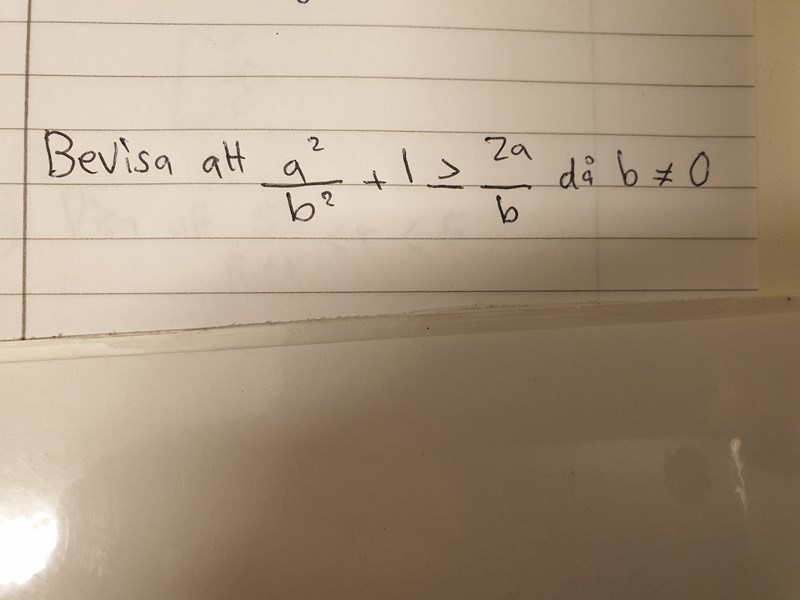 Bevisa att a²/b² + 1 ≥ 2a/b då b ≠ 0